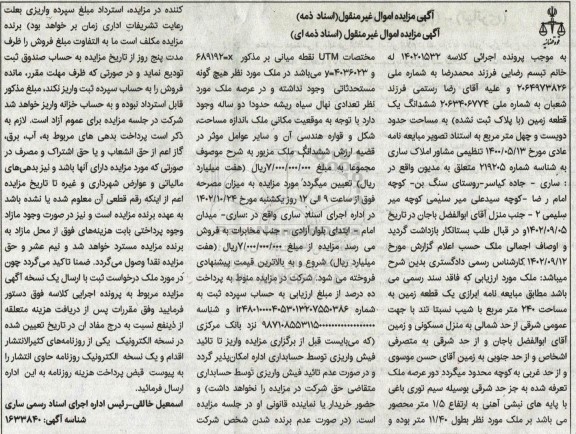 آگهی مزایده اموال غیر منقول(اسناد ذمه)
آگهی مزایده اموال غیر منقول (اسناد ذمه ای)
به موجب پرونده اجرائی کلاسه ۱۴۰۲۰۱۵۳۲ له
خانم تبسم رضایی فرزند محمدرضا به شماره ملی
۲۰۶۴۹۷۳۸۲۶ و علیه آقای رضا رستمی فرزند
شعبان به شماره ملی ۲۰۶۳۴۰۶۷۷۴ ششدانگ یک
قطعه زمین (با پلاک ثبت نشده) به مساحت حدود
دویست و چهل متر مربع به استناد تصویر مبایعه نامه
عادی مورخ ۱۴۰۰/۰۵/۱۳ تنظیمی مشاور املاک ساری
به شناسه شماره ۲۱۹۲۰۵ متعلق به مدیون واقع در
: ساری - جاده کیاسر-روستای سنگ بن- کوچه
امام رضا -کوچه سیدعلی میر سلیمی کوچه میر
سلیمی ۲ - جنب منزل آقای ابوالفضل باجان در تاریخ
۱۴۰۲/۰۹/۰۵و در قبال طلب بستانکار بازداشت گردید
و اوصاف اجمالی ملک حسب اعلام گزارش مورخ
۱۴۰۲/۰۹/۱۲ کارشناس رسمی دادگستری بدین شرح
میباشد: ملک مورد ارزیابی که فاقد سند رسمی می
باشد مطابق مبایعه نامه ابرازی یک قطعه زمین به
مساحت ۲۴۰ متر مربع با شیب نسبتا تند با جهت
عمومی شرقی از حد شمالی به منزل مسکونی و زمین
آقای ابوالفضل باجان و از حد شرقی به متصرفی
اشخاص و از حد جنوبی به زمین آقای حسن موسوی
و از حد غربی به کوچه محدود میگردد دور عرصه ملک
تعرفه شده به جز حد شرقی بوسیله سیم توری باغی
با پایه های نبشی آهنی به ارتفاع ۱/۵ متر محصور
می باشد بر ملک مورد نظر بطول ۱۱/۴۰ متر بوده و
مختصات UTM نقطه میانی بر مذکور ۶۸۹۱۹۲۰x
و ۴۰۳۶۰۲۳=y می‌باشد در ملک مورد نظر هیچ گونه
مستحدثاتی وجود نداشته و در عرصه ملک مورد
نظر تعدادی نهال سیاه ریشه حدودا دو ساله وجود
دارد با توجه به موقعیت مکانی ملک ،اندازه مساحت،
شکل و قواره هندسی آن و سایر عوامل موثر در
قضیه ارزش ششدانگ ملک مزبور به شرح موصوف
مجموعا به مبلغ ۷/۰۰۰/۰۰۰/۰۰۰ریال (هفت میلیارد
ریال) تعیین میگردد مورد مزایده به میزان مصرحه
فوق از ساعت ۹ الی ۱۲ روز یکشنبه مورخ ۱۴۰۲/۱۰/۲۴
در اداره اجرای اسناد رسمی ساری واقع در :ساری- میدان
امام - ابتدای بلوار آزادی - جنب مخابرات به فروش
می رسد مزایده از مبلغ ۷/۰۰۰/۰۰۰/۰۰۰ریال (هفت
میلیارد ریال) شروع و به بالاترین قیمت پیشنهادی
فروخته می شود. شرکت در مزایده منوط به پرداخت
ده درصد از مبلغ ارزیابی به حساب سپرده ثبت به
نزد بانک مرکزی
(که می‌بایست قبل از برگزاری مزایده واریز تا تائید
فیش واریزی توسط حسابداری اداره امکان‌پذیر گردد
و در صورت عدم تائید فیش واریزی توسط حسابداری
متقاضی حق شرکت در مزایده را نخواهد داشت) و
حضور خریدار یا نماینده قانونی او در جلسه مزایده
است. (در صورت عدم برنده شدن شخص شرکت
کننده در مزایده، استرداد مبلغ سپرده واریزی بعلت
رعایت تشریفات اداری زمان بر خواهد بود) برنده
مزایده مکلف است ما به التفاوت مبلغ فروش را ظرف
مدت پنج روز از تاریخ مزایده به حساب صندوق ثبت
تودیع نماید و در صورتی که ظرف مهلت مقرر، مانده
فروش را به حساب سپرده ثبت واریز نکند، مبلغ مذکور
قابل استرداد نبوده و به حساب خزانه واریز خواهد شد
شرکت در جلسه مزایده برای عموم آزاد است. لازم به
ذکر است پرداخت بدهی های مربوط به، آب، برق،
گاز اعم از حق انشعاب و یا حق اشتراک و مصرف در
صورتی که مورد مزایده دارای آنها باشد و نیز بدهی‌های
مالیاتی و عوارض شهرداری و غیره تا تاریخ مزایده
اعم از اینکه رقم قطعی آن معلوم شده یا نشده باشد
به عهده برنده مزایده است و نیز در صورت وجود مازاد
وجوه پرداختی بابت هزینه‌های فوق از محل مازاد به
برنده مزایده مسترد خواهد شد و نیم عشر و حق
مزایده نقدا وصول می‌گردد. ضمنا تاکید می‌گردد چون
در مورد ملک درخواست ثبت با ارسال یک نسخه آگهی
مزایده مربوط به پرونده اجرایی کلاسه فوق دستور
فرمایید وفق مقررات پس از دریافت هزینه متعلقه
از ذینفع نسبت به درج مفاد ان در تاریخ تعیین شده
در نسخه الکترونیک یکی از روزنامه‌های کثیرالانتشار
اقدام و یک نسخه الکترونیک روزنامه حاوی انتشار را
به پیوست قبض پرداخت هزینه روزنامه به این اداره
ارسال فرمائید.
اسمعیل خالقی-رئیس اداره اجرای اسناد رسمی ساری
شناسه آگهی: ۱۶۳۳۸۴۰